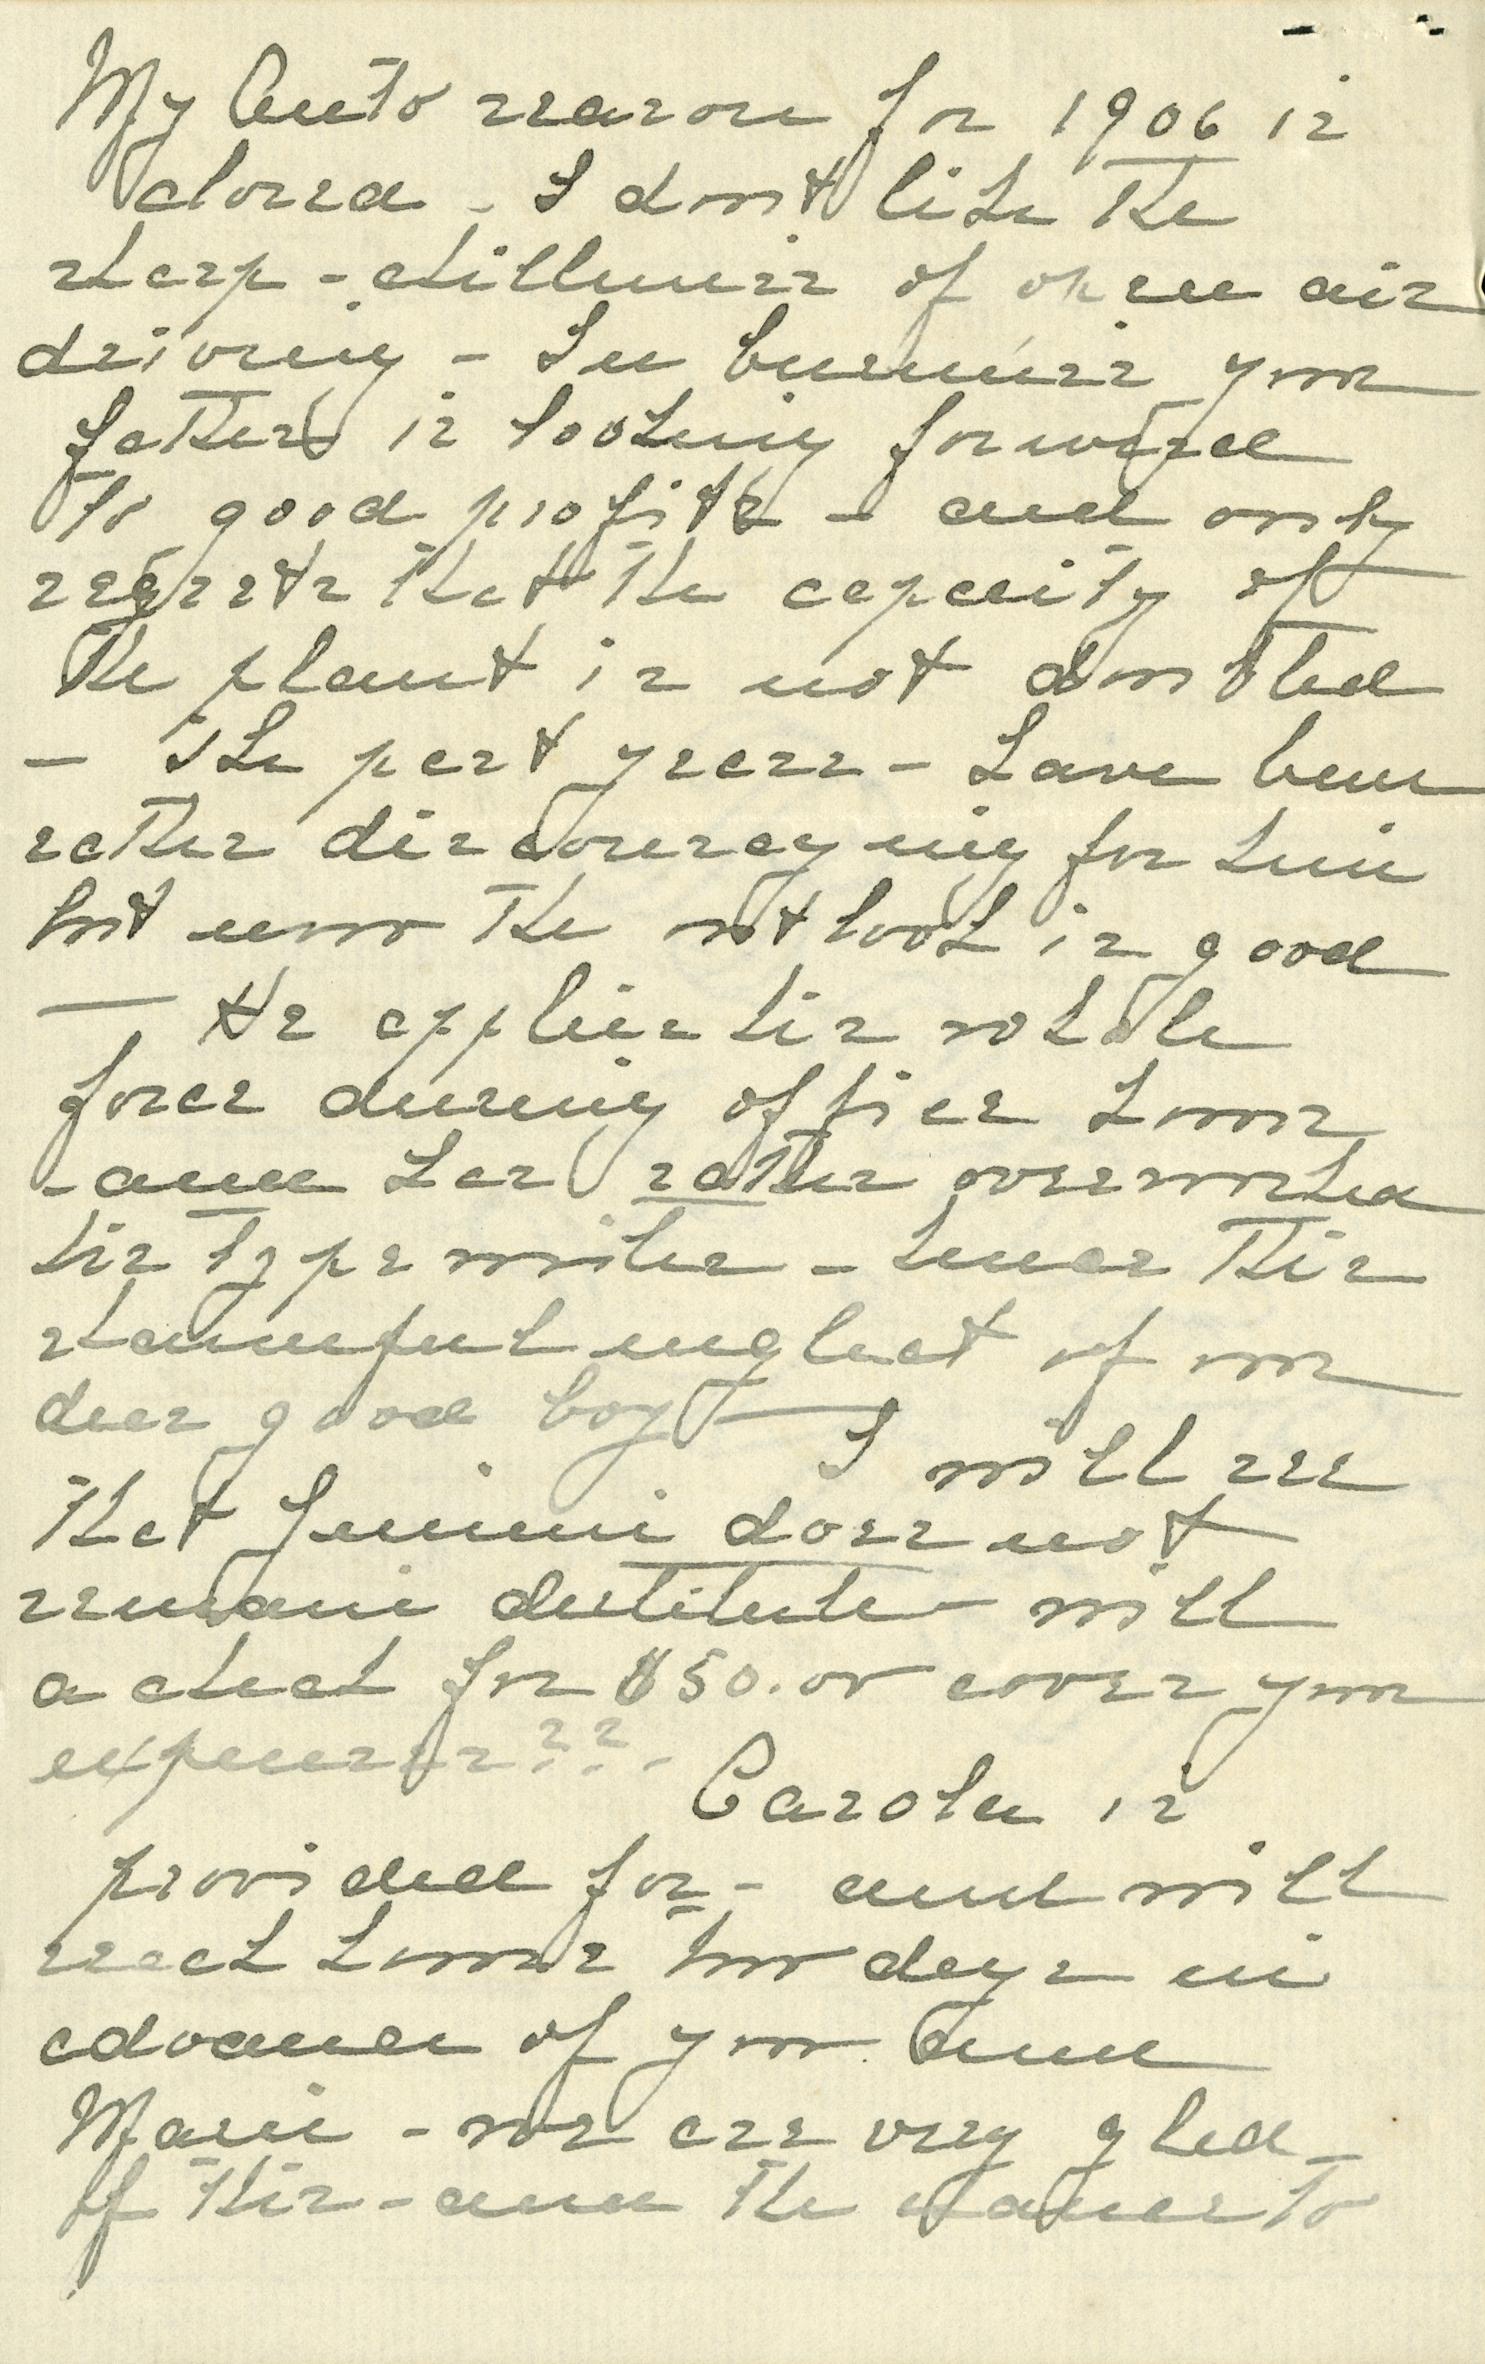 My Auto season for 1906 is
closed - I don't like the
sharp - chilliness of open air
driving - In business your
father is looking forward
to good profits - and only
regrets that the capacity of
the plant is not doubled
- The past years - have been
rather discouraging for him
but now the outlook is good
- He applies his whole
force during office hours
- and has rather overworked
his typewriter - hence this
shameful neglect of our
dear good boy - I will see
that Jimmi does not
remain destitute - will
a check for $50.00 cover your
expenses??.
Carola is
provided for - and will
reach home two days in
advance of you and
Marie - we are very glad
of this - and the chance to